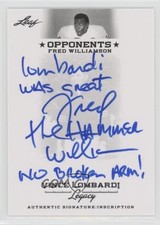 Leaf
OPPONENTS
FRED WILLIAMSON
Lombardi
WAS great
Fred
the HAMMER
William
NO BROKEN ARM!
VINCE LOMBARDI
Legacy
AUTHENTIC SIGNATURE/INSCRIPTION